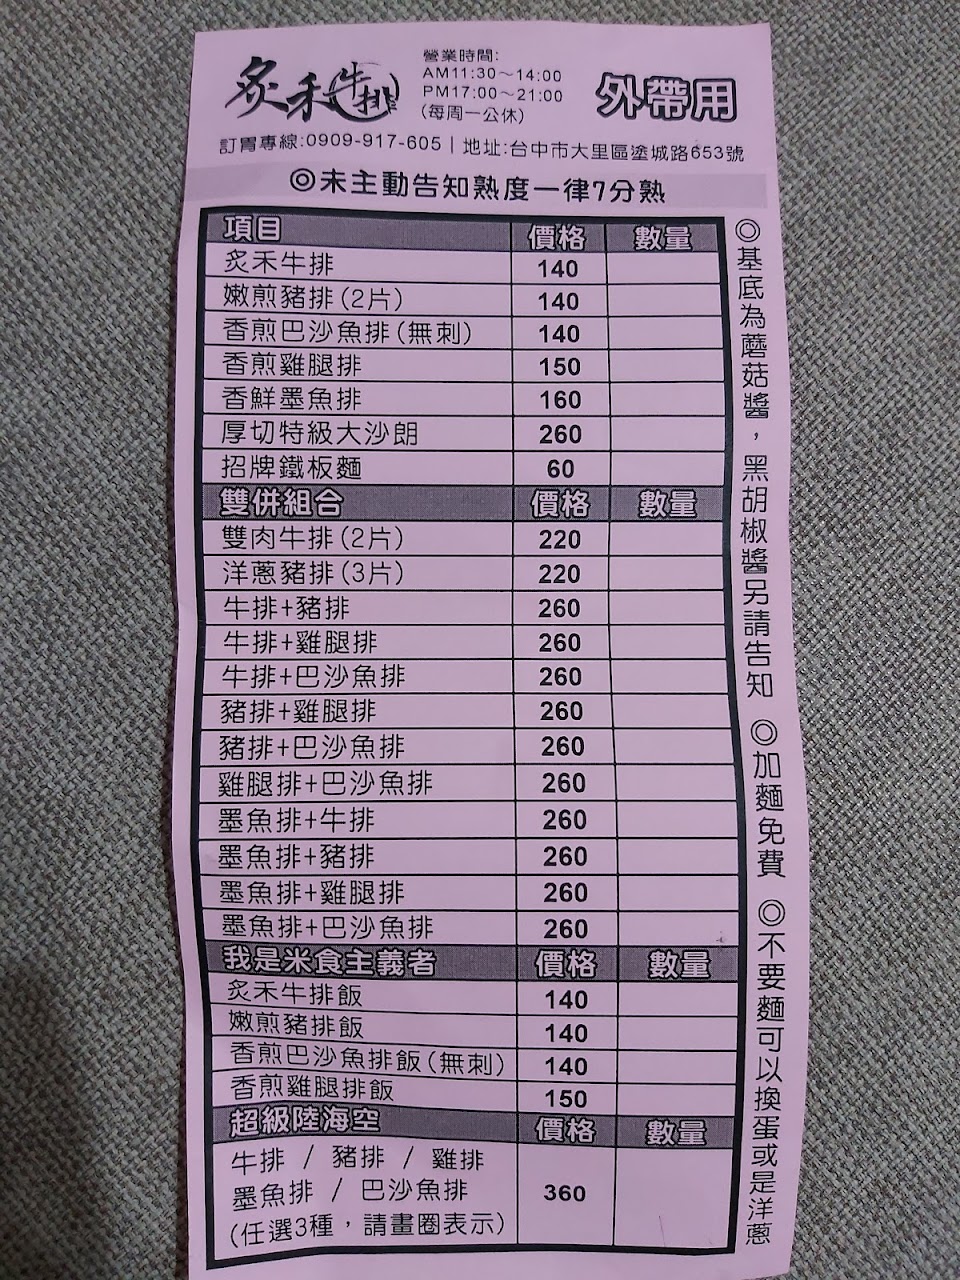 炙禾牛排
營業時間:
AM11:30～14:00
PM17:00～21:00
(每周一公休)
外帶用
訂胃專線:0909-917-605｜地址:台中市大里區塗城路653號
◎未主動告知熟度一律7分熟
項目 價格 數量
炙禾牛排 140
嫩煎豬排(2片) 140
香煎巴沙魚排(無刺) 140
香煎雞腿排 150
香鮮墨魚排 160
厚切特級大沙朗 260
招牌鐵板麵 60
雙併組合 價格 數量
雙肉牛排(2片) 220
洋蔥豬排(3片) 220
牛排+豬排 260
牛排+雞腿排 260
牛排+巴沙魚排 260
豬排+雞腿排 260
豬排+巴沙魚排 260
雞腿排+巴沙魚排 260
墨魚排+牛排 260
墨魚排+豬排 260
墨魚排+雞腿排 260
墨魚排+巴沙魚排 260
我是米食主義者 價格 數量
炙禾牛排飯 140
嫩煎豬排飯 140
香煎巴沙魚排飯(無刺) 140
香煎雞腿排飯 150
超級陸海空 價格 數量
牛排 / 豬排 / 雞排
墨魚排 / 巴沙魚排 360
(任選3種，請畫圈表示)
◎基底為蘑菇醬，黑胡椒醬另請告知 ◎加麵免費 ◎不要麵可以換蛋或是洋蔥